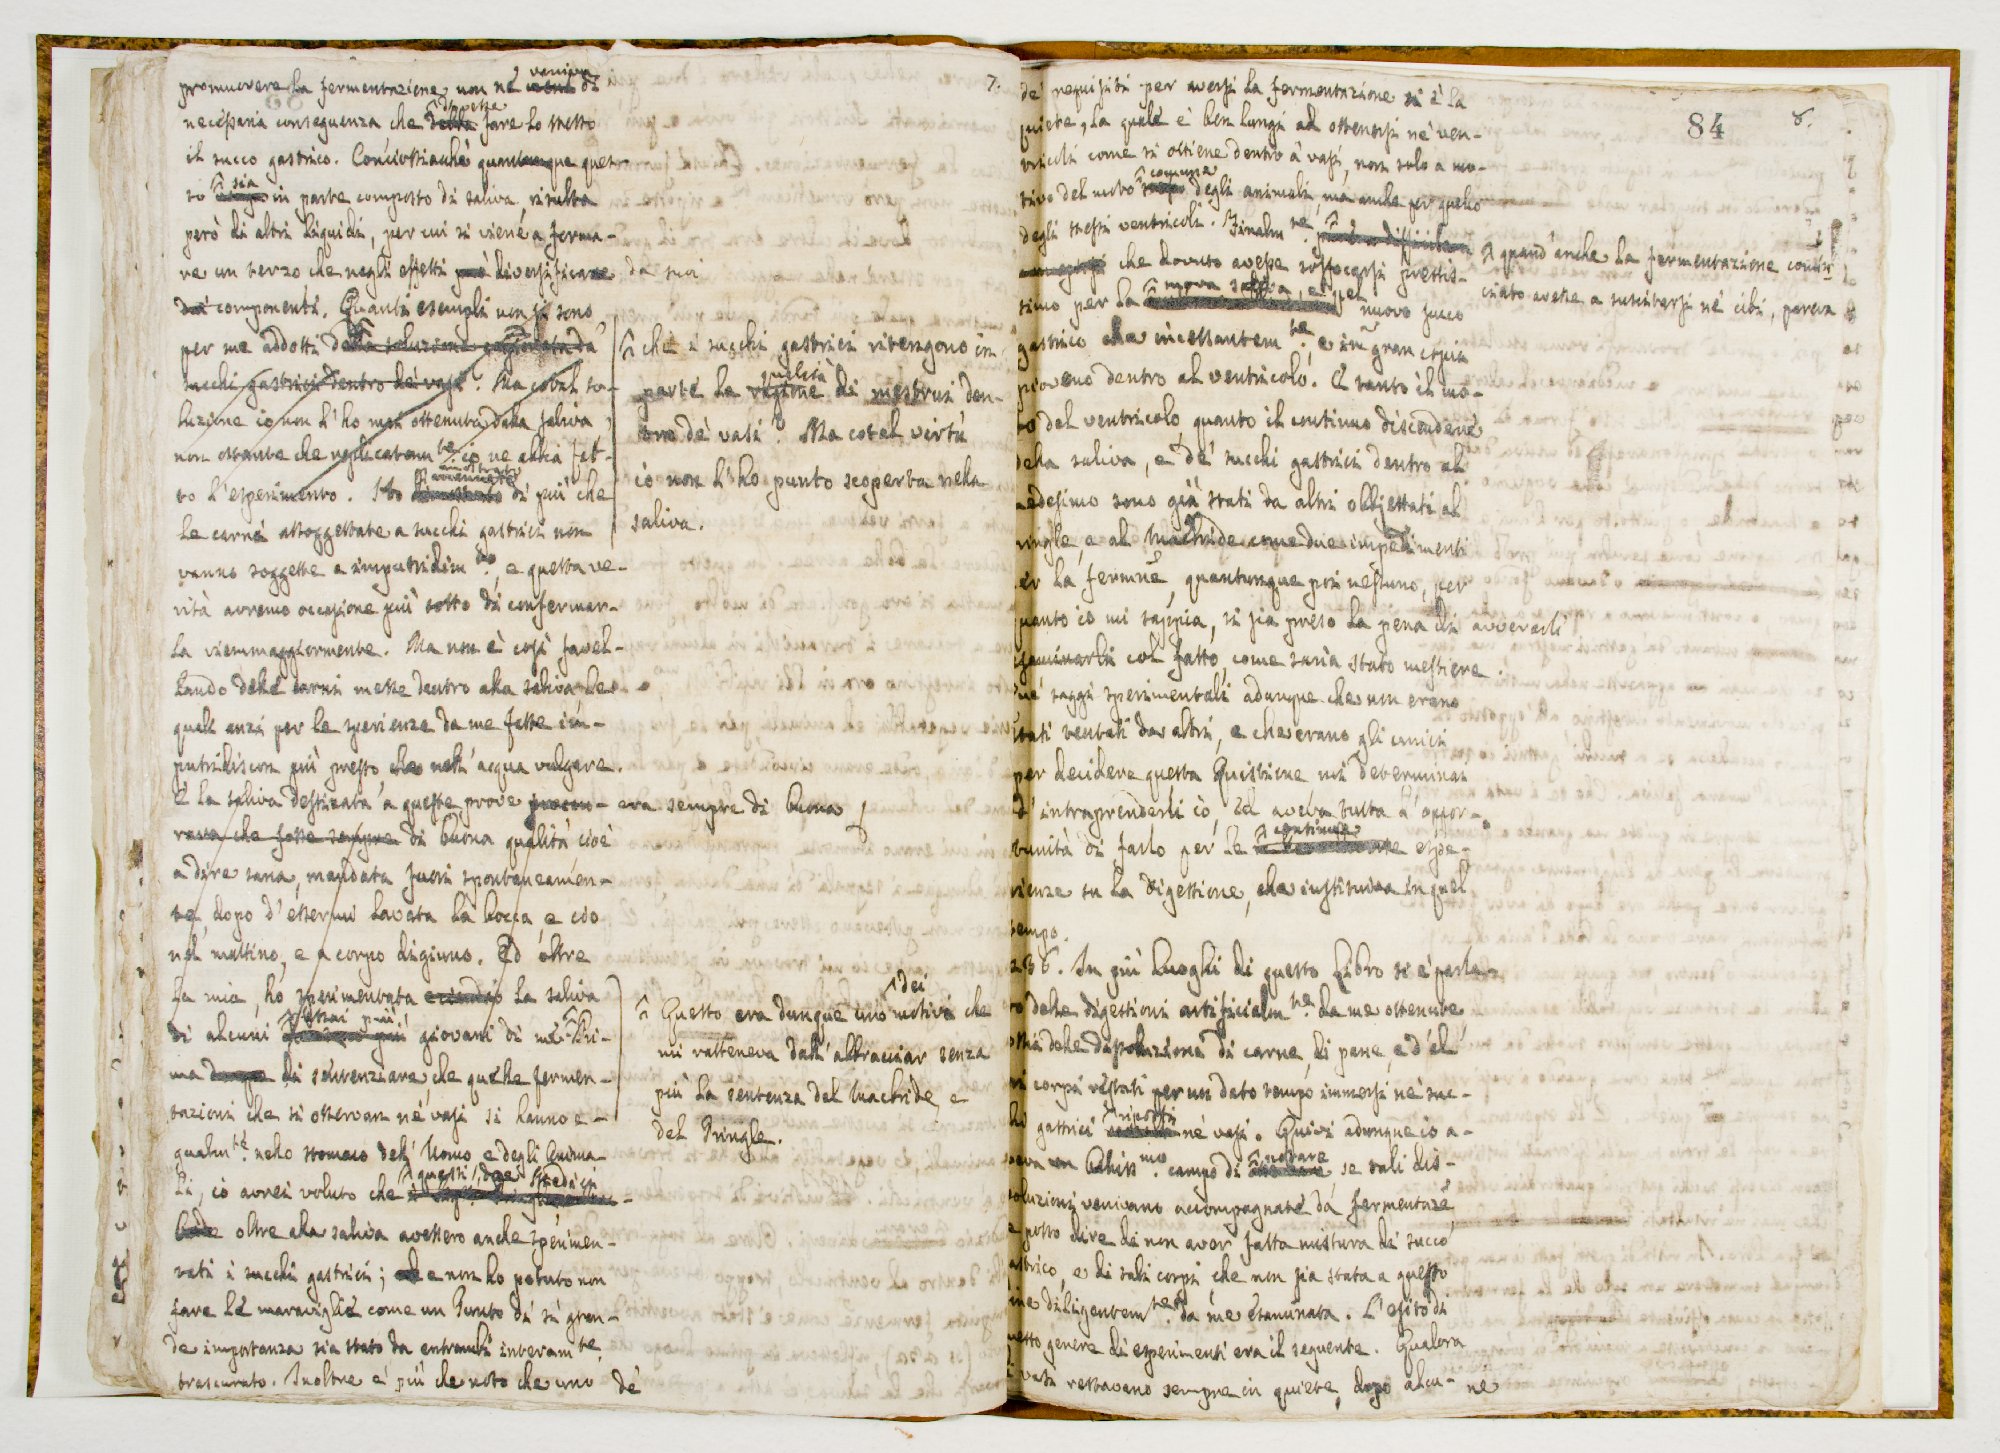 7.
promuovere la fermentazione non ne veniva di
necessaria conseguenza che dovesse fare lo stesso
il succo gastrico. Conciossiachè quantunque ques-
to sia in parte composto di saliva, risulta
però di altri liquidi, per cui si viene a forma-
re un terzo che negli effetti può diversificare da suoi
dai componenti. Quanti esempli non si sono
per me addotti della soluzione
succhi gastrici dentro de' vasi? Ma cotal so-
luzione io non l'ho mai ottenuta dalla saliva,
non ostante che replicatamte. io ne abbia fat-
to l'esperimento. Ho di più che
le carni assoggettate a succhi gastrici non
vanno soggette a imputridimto., e questa ve-
rità avremo occasione più sotto di confermar-
la viemmaggiormente. Ma non è così favel-
lando delle carni messe dentro alla saliva le
quali anzi per le sperienze da me fatte im-
putridiscon più presto che nell'acqua vulgare.
E la saliva destinata a queste prove era sempre di buona
rava che fosse sempre di buona qualità cioè
a dire sana, mandata fuori spontaneamen-
te, dopo d'essermi lavata la bocca, e ciò
nel mattino, e a corpo digiuno. Ed oltre
la mia, ho sperimentata la saliva
di alcuni assai più giovani di me. Pri-
ma di sentenziare, che quelle fermen-
tazioni che si osservan ne' vasi si hanno e-
gualmte. nello stomaco dell'Uomo e degli Anima-
li, io avrei voluto che questi due Medici
oltre alla saliva avessero anche sperimen-
tati i succhi gastrici; e non ho potuto non
fare le maraviglie come un Punto di sì gran-
de importanza sia stato da entrambi interamte.
trascurato. Inoltre è più che noto che uno
de'
che i succhi gastrici ritengono in
parte la qualità di mestrui den-
tro de' vasi? Ma cotal virtù
io non l'ho punto scoperta nella
saliva.
Questo era dunque uno dei motivi che
mi ratteneva dall'abbracciar senza
più la sentenza del Macbride, e
del Pringle.
84
8.
de' requisiti per aversi la fermentazione si è la
quiete, la quale è ben lungi ad ottenersi ne' ven-
tricoli come si ottiene dentro a' vasi, non solo a mo-
tivo del moto comune degli animali ma anche per quello
degli stessi ventricoli. Finalmte.
che dovuto avesse soffocarsi prestis-
simo per la nuova saliva, e pel nuovo succo
gastrico che incessantemte., e in gran copia
piovono dentro al ventricolo. E tanto il mo-
to del ventricolo quanto il continuo discendere
della saliva, e de' succhi gastrici dentro al
medesimo sono già stati da altri obbjettati al
Pringle, e al Macbride come due impedimenti
per la fermne, quantunque poi nessuno, per
quanto io mi sappia, si sia preso la pena di avverarli
esaminarli col fatto, come saria stato mestiere.
saggi sperimentali adunque che non erano
stati tentati da altri, e che erano gli unici
per decidere questa Quistione mi determinai
d'intraprenderli io, ed aveva tutta l'oppor-
tunità di farlo per le continue espe-
rienze su la digestione, che instituiva in quel
tempo.
236. In più luoghi di questo Libro si è parla-
to delle digestioni artificialmte. da me ottenute
ossia delle dissoluzioni di carne, di pane, e d'al-
tri corpi restati per un dato tempo immersi ne' suc-
chi gastrici riposti ne' vasi. Quivi adunque io a-
veva campo di notare, se tali dis-
soluzioni venivano accompagnate da fermentaze,
e posso dire di non aver fatta mistura di succo
gastrico, e di tali corpi, che non sia stata a questo
fine diligentemte. da me esaminata. L'esito di
questo genere di esperimenti era il seguente. Qualora
i vasi restavano sempre in quiete, dopo alcu-
ne
quand'anche la fermentazione comin-
ciato avesse a suscitarsi ne' cibi, pareva